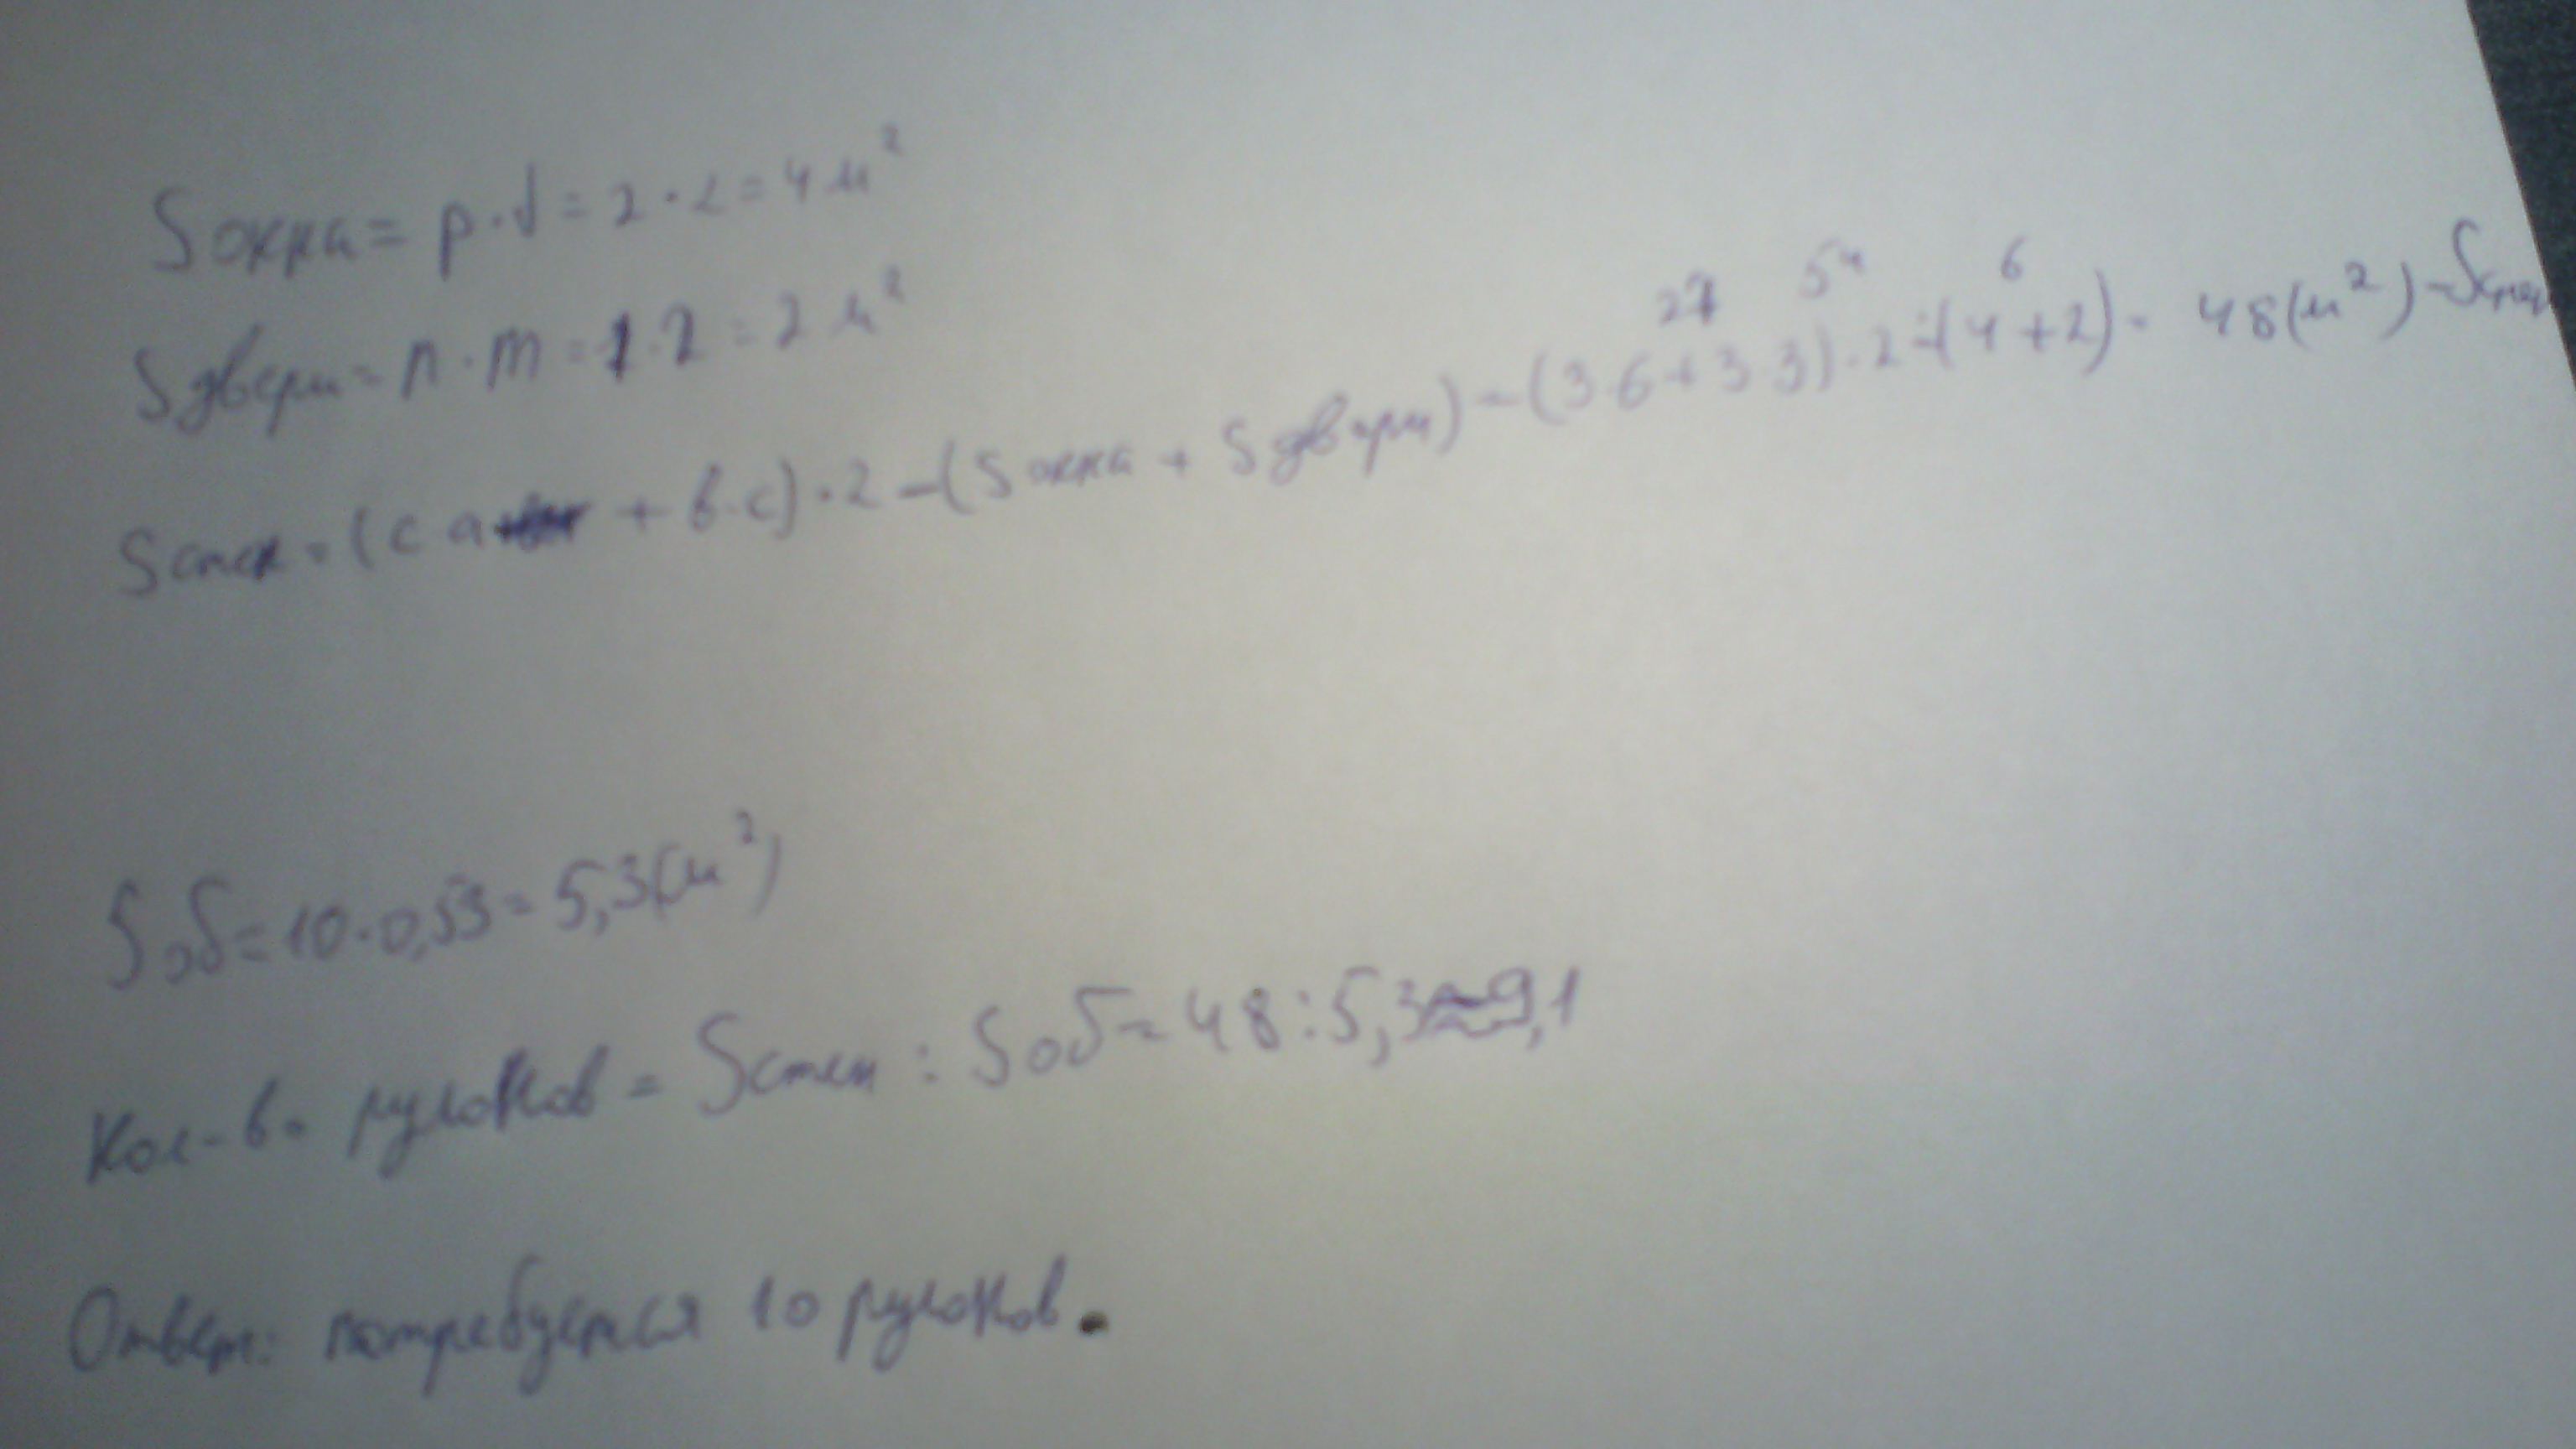 S окна = p · d = 2 · 2 = 4 м²
S двери = n · m = 1 · 2 = 2 м²
27 54 6
S стен = (c a + b · c) · 2 – (S окна + S двери) = (3 · 6 + 3 · 3) · 2 - (4 + 2) = 48 (м²) - S стен
S об = 10 · 0,53 = 5,3 (м²)
Кол-во рулонов = S стен : S об = 48 : 5,3 ≈ 9,1
Ответ: потребуется 10 рулонов.